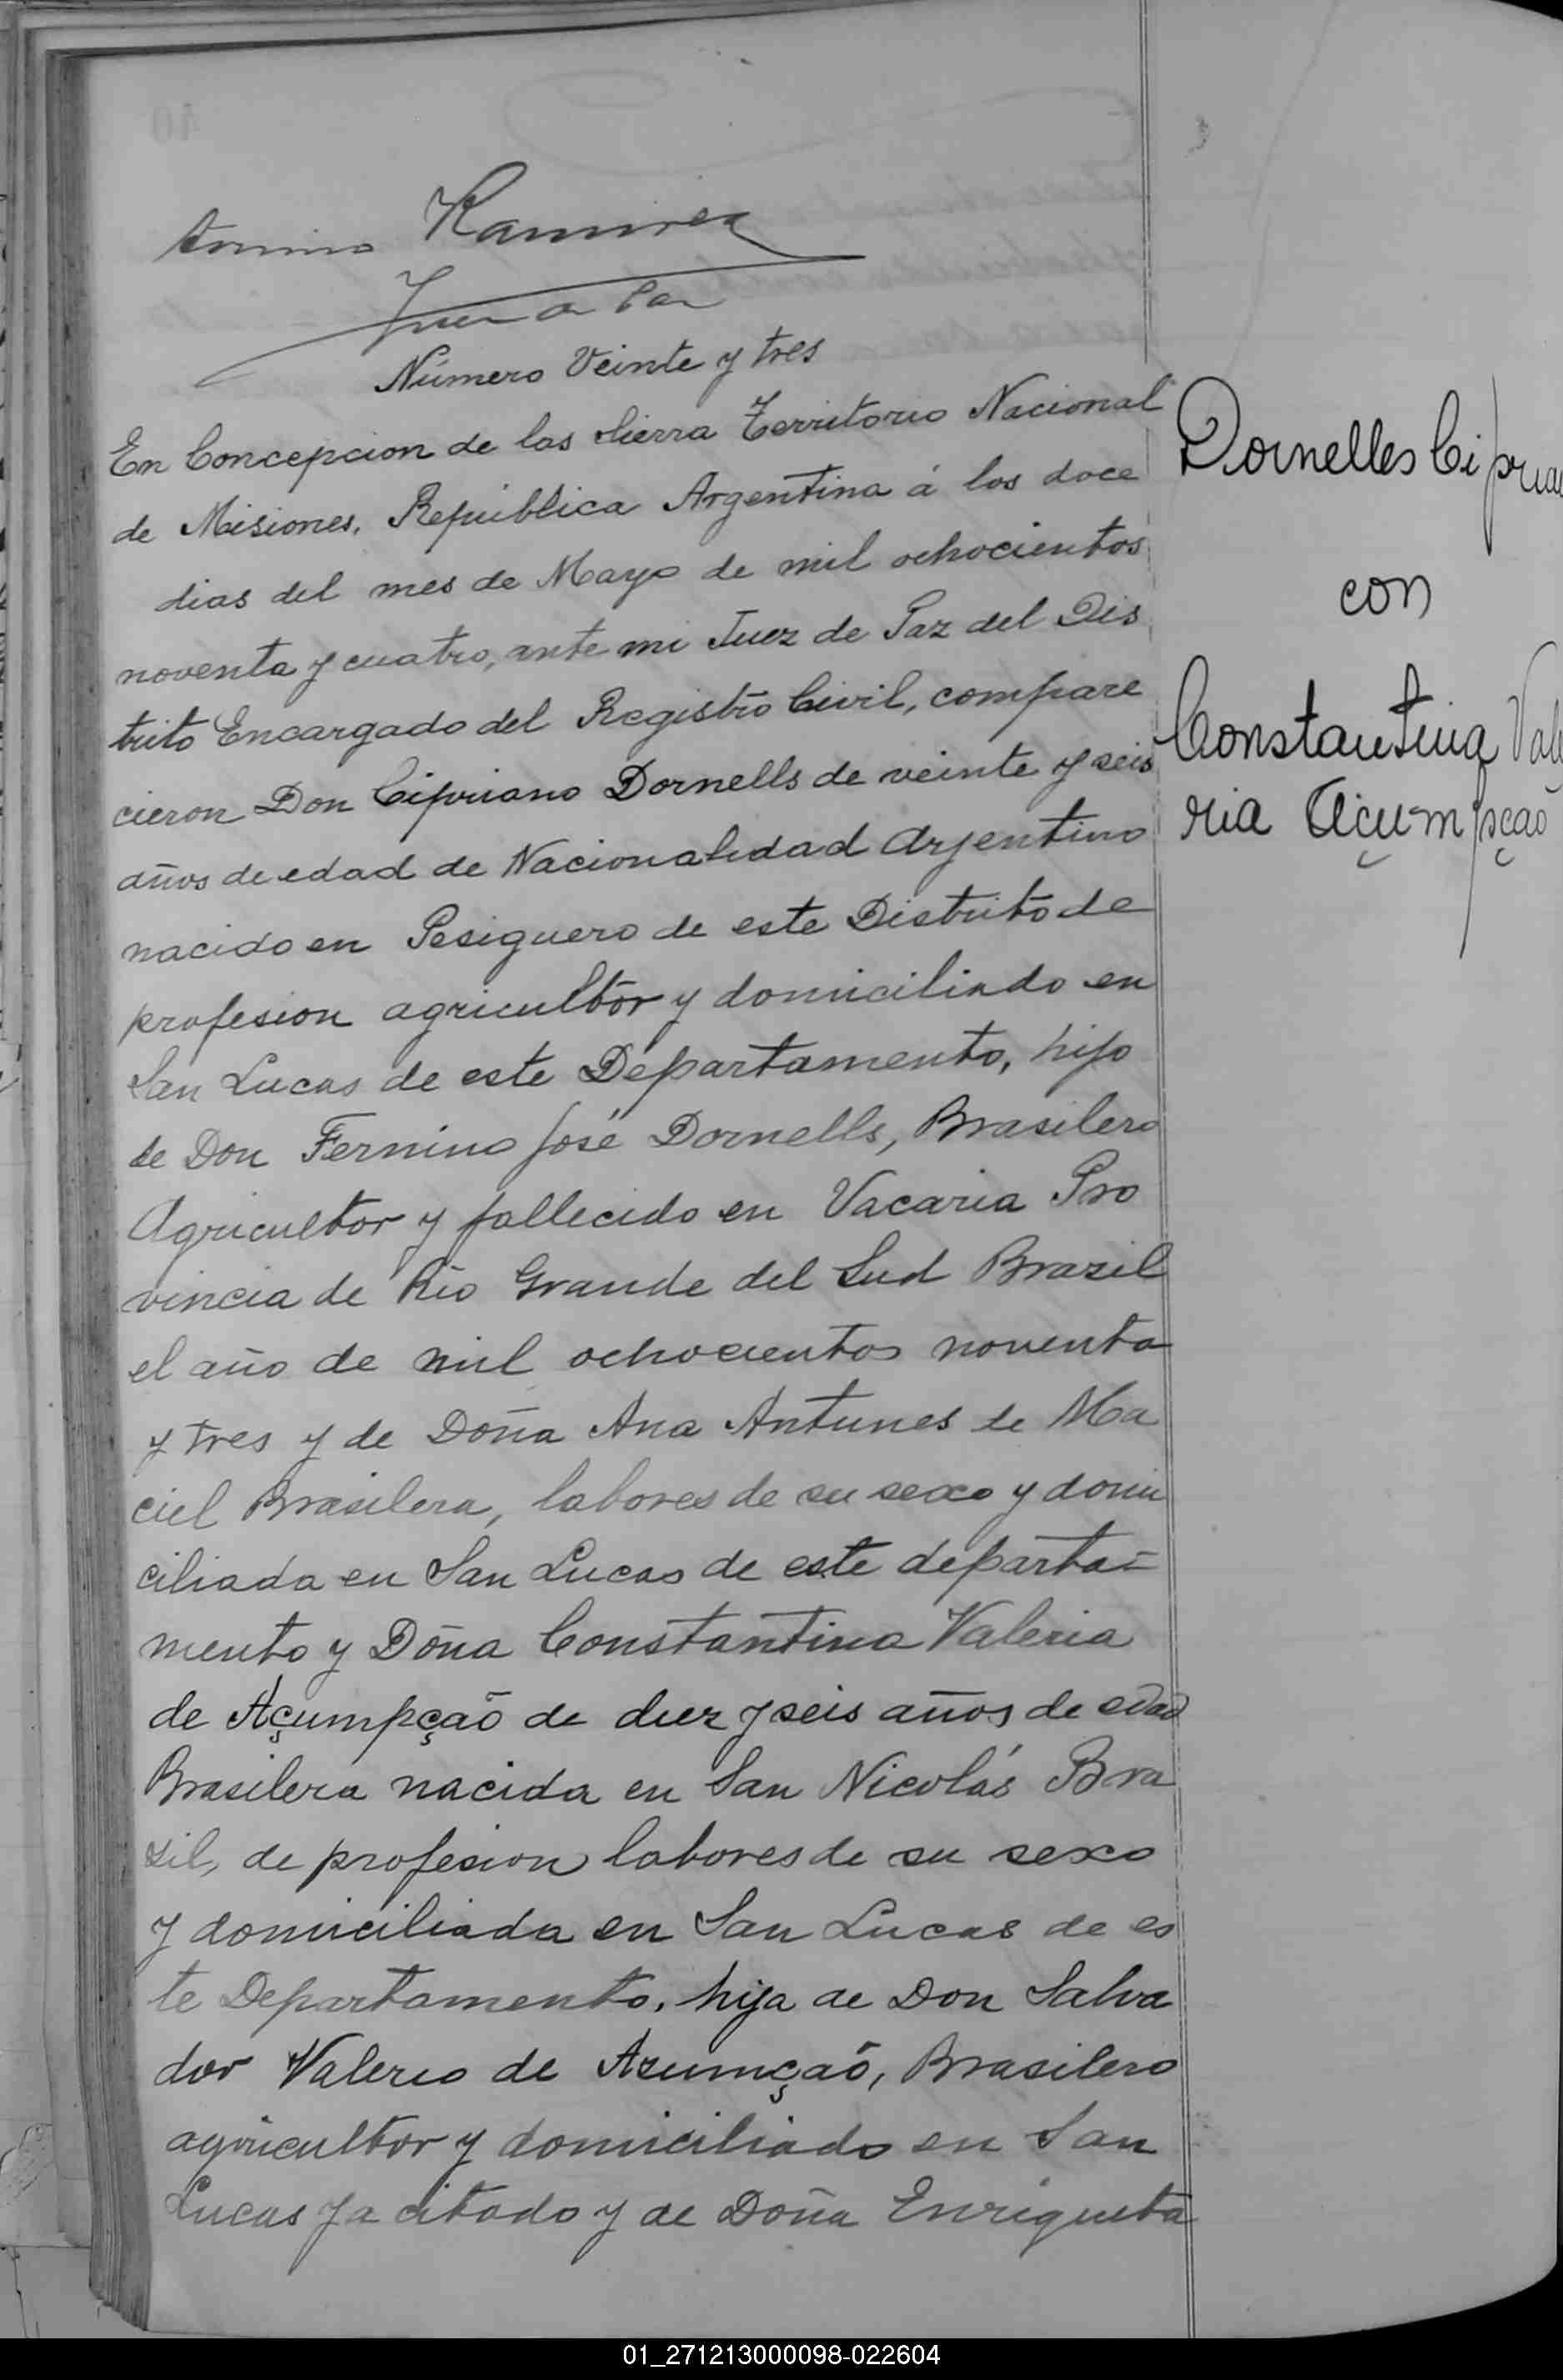 Ramirez
Juez de Paz
Número Veinte y tres
En Concepcion de las Sierra Territorio Nacional
de Misiones, República Argentina á los doce
dias del mes de Mayo de mil ochocientos
noventa y cuatro, ante mi Juez de Paz del Dis
trito Encargado del Registro Civil, compare
cieron Don Cipriano Dornells de veinte y seis
años de edad de Nacionalidad Argentino
nacido en Pesiguero de este Distrito de
profesion agricultor y domiciliado en
San Lucas de este Departamento, hijo
de Don Fernino José Dornells, Brasilero
Agricultor y fallecido en Vacaria Pro
vincia de Rio Grande del Sud Brazil
el año de mil ochocientos noventa
y tres y de Doña Ana Antunes de Ma
ciel Brasilera, labores de su sexo y domi
ciliada en San Lucas de este departa-
mento y Doña Constantina Valeria
de Açumpçaõ de diez y seis años de edad
Brasilera nacida en San Nicolás Bra
zil, de profesion labores de su sexo
y domiciliada en San Lucas de es
te Departamento, hija de Don Salva
dor Valerio de Azumçaõ, Brasilero
agricultor y domiciliado en San
Lucas ya citado y de Doña Enriqueta
Dornelles Ciprian
con
Constantina Vale
ria Açumpçaõ
01_271213000098-022604